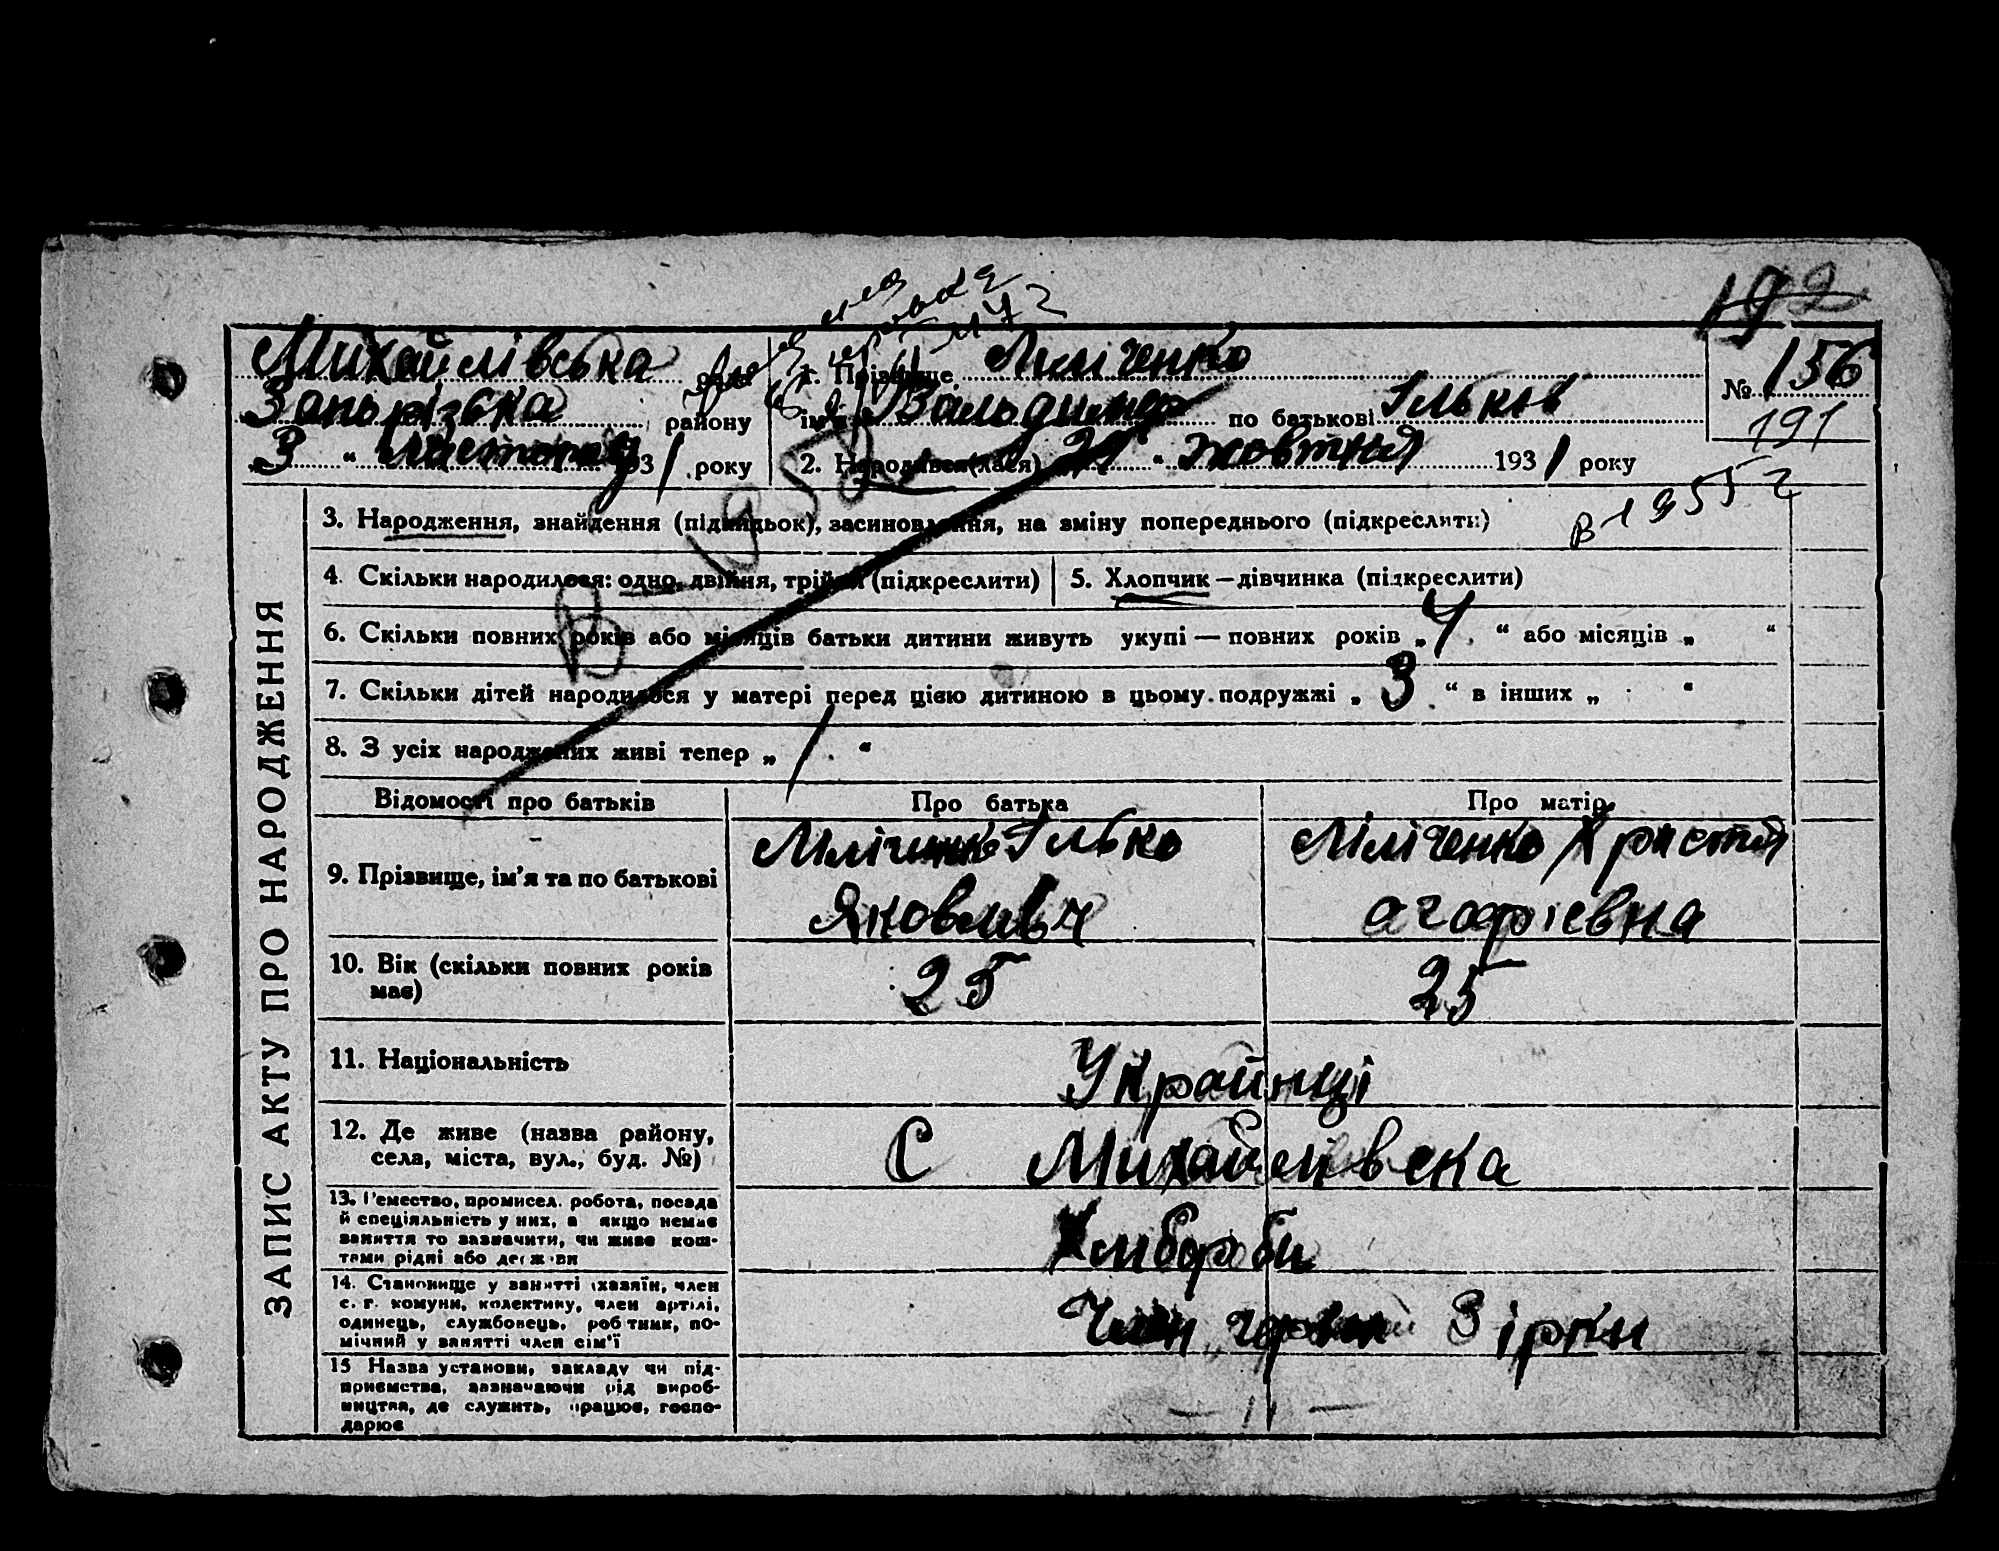 192
Михайлівська
Запорізька району
„3“ листопад 1931 року
1. Прізвище Міліченко
ім'я Вальдимер по батькові Ільков
2. Народився(лася) 29 “ жовтня 1931 року
№ 156
191
в 1955 г
В 1950
ЗАПИС АКТУ ПРО НАРОДЖЕННЯ
3. Народження, знайдення (підкидьок), засиновлення, на зміну попереднього (підкреслити)
4. Скільки народилося: одно, двійня, трійня (підкреслити)
5. Хлопчик — дівчинка (підкреслити)
6. Скільки повних років або місяців батьки дитини живуть укупі — повних років „4“ або місяців „ “
7. Скільки дітей народилося у матері перед цією дитиною в цьому подружжі „3“ в інших „ “
8. З усіх народжених живі тепер „1“
Відомості про батьків Про батька Про матір
9. Прізвище, ім'я та по батькові
Міліченко Ілько
Яковлівч
Міліченко Христя
агафієвна
10. Вік (скільки повних років
має)
25 25
11. Національність
Украйнці
12. Де живе (назва району,
села, міста, вул., буд. №)
С Михайлівска
13. Ремество, промисел, робота, посада
й спеціяльність у них, а якщо немає
заняття то зазначити, чи живе кош-
тами рідні або держави
Хлібороби
14. Становище у занятті (хазяїн, член
с. г. комуни, колективу, член артілі,
одинець, службовець, робітник, по-
мічний у занятті член сім'ї
Член Зірки
15 Назва установи, закладу чи під-
приємства, зазначаючи рід вироб-
ництва, де служить, працює, госпо-
дарює
— 11 —